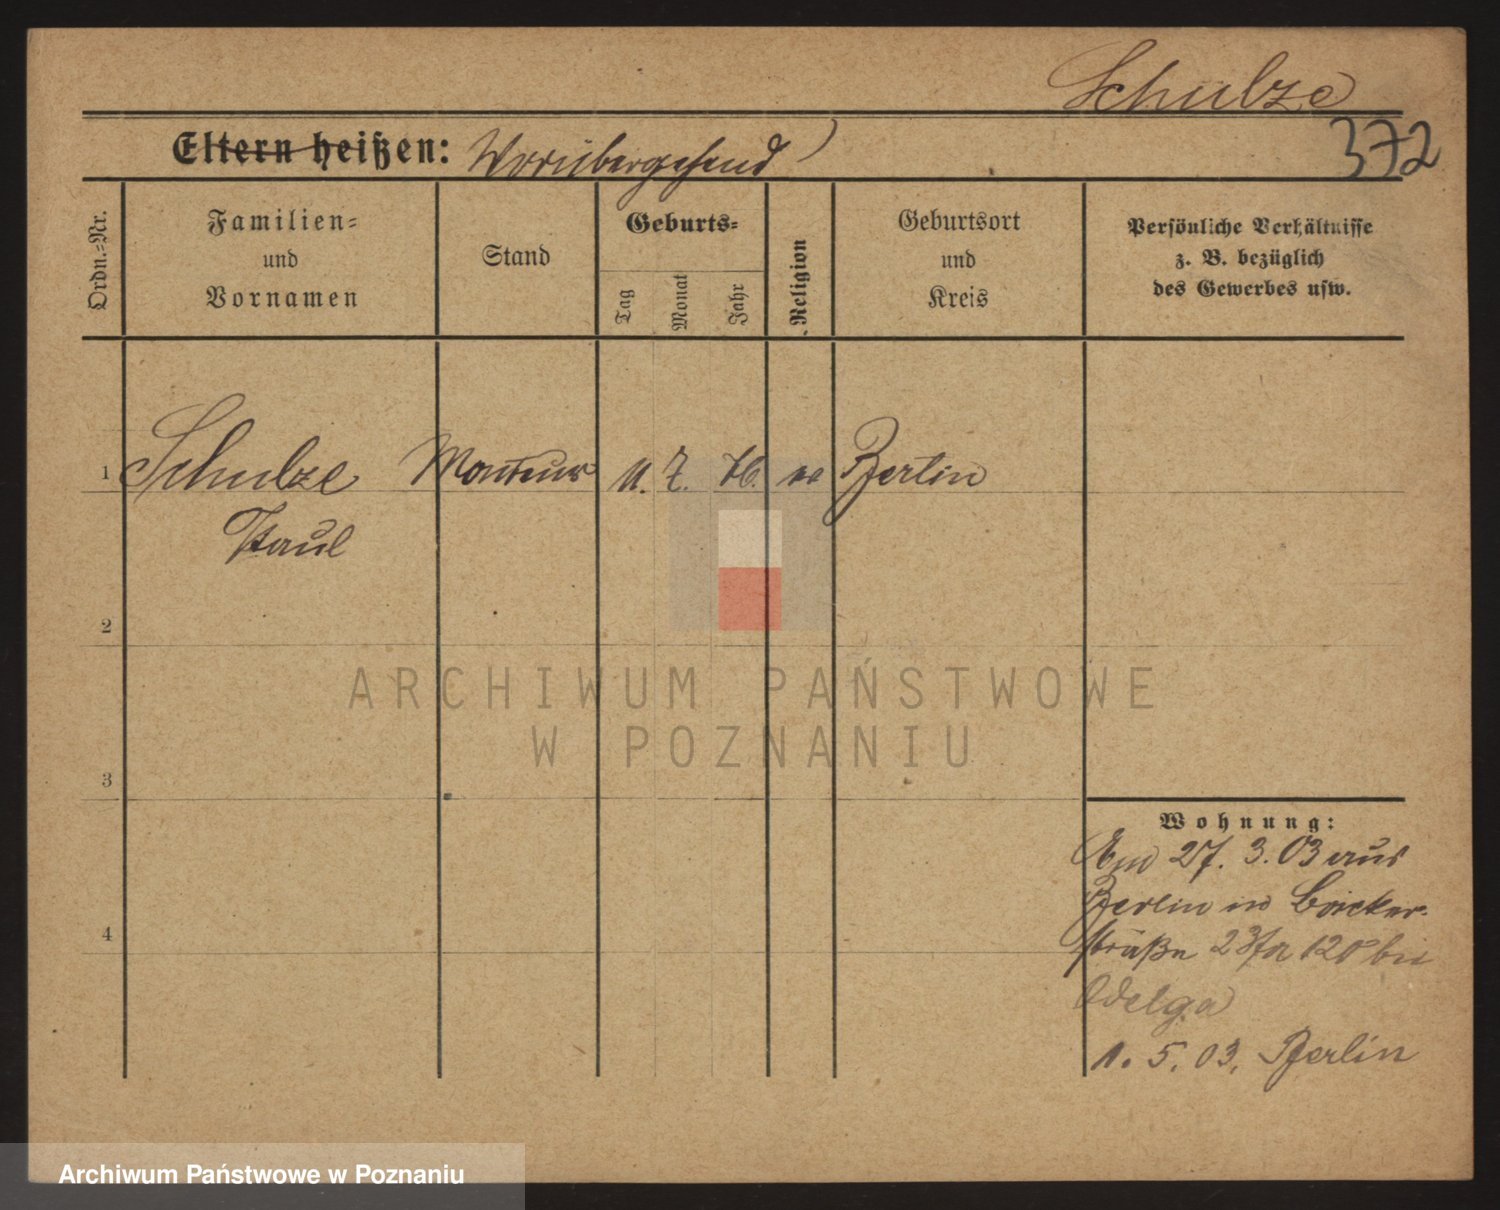 Schulze
372
Eltern heißen: Vorübergehend
Ordn.=Nr.
Familien=
und
Vornamen
Stand
Geburts=
Tag
Monat
Jahr
Religion
Geburtsort
und
Kreis
Persönliche Verhältnisse
z. B. bezüglich
des Gewerbes usw.
1 Schulze Monteur 11. 7. 76. ev Berlin
Paul
2
3
4
ARCHIWUM PAŃSTWOWE
W POZNANIU
Wohnung:
27. 3. 03 aus
Berlin in
straße bei
1. 5. 03. Berlin
Archiwum Państwowe w Poznaniu